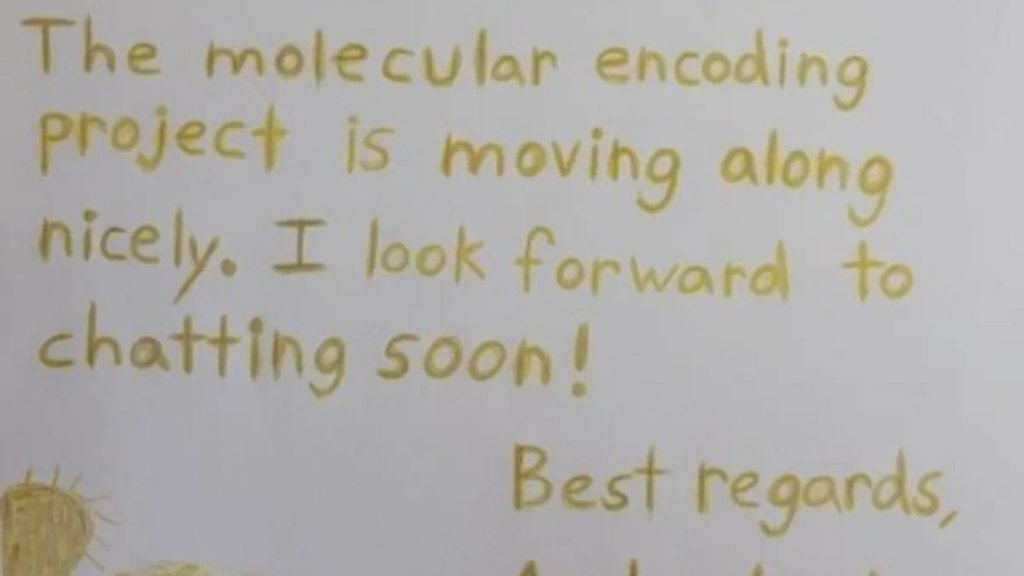 The molecular encoding
project is moving along
nicely. I look forward to
chatting soon!
Best regards,